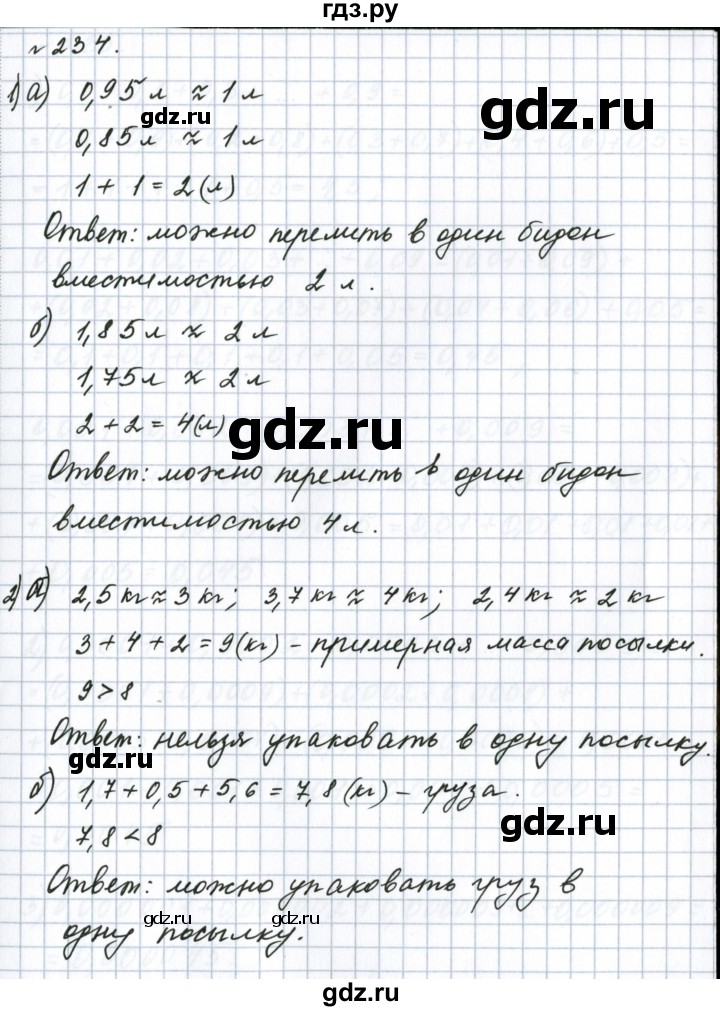 гдз.ру
№ 234.
1) а) 0,95 л ≈ 1 л
gdz.ru
gdz.ru
0,85 л ≈ 1 л
1 + 1 = 2 (л)
Ответ: можно перелить в один бидон
вместимостью 2 л.
б) 1,85 л ≈ 2 л
1,75 л ≈ 2 л
2 + 2 = 4 (л)
gdz.ru
Ответ: можно перелить в один бидон
вместимостью 4 л.
2) а) 2,5 кг ≈ 3 кг; 3,7 кг ≈ 4 кг; 2,4 кг ≈ 2 кг
3 + 4 + 2 = 9 (кг) – примерная масса посылки.
9 > 8
Ответ: нельзя упаковать в одну посылку.
gdz.ru
б) 1,7 + 0,5 + 5,6 = 7,8 (кг) – груза.
7,8 < 8
gdz.ru
Ответ: можно упаковать груз в
одну посылку.
gdz.ru
gdz.ru
gdz.ru